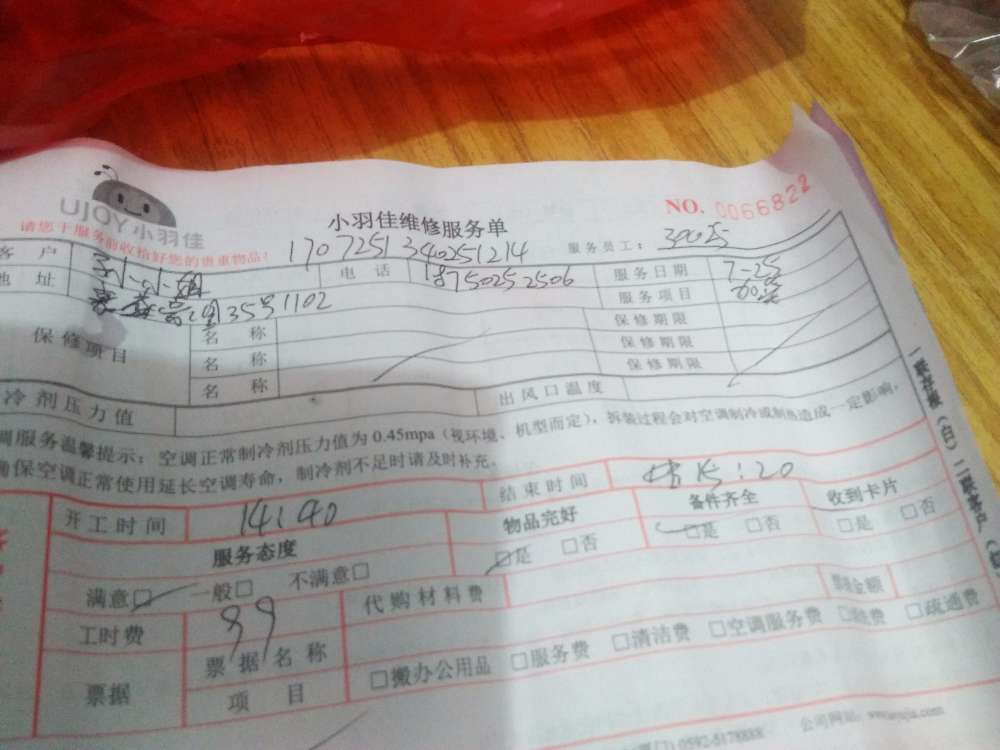 UJOY小羽佳
小羽佳维修服务单
NO. 0066822
请您于服务前收拾好您的贵重物品!
170725134025 1214
服务员工:
客 户
电 话 18750252506
服务日期 7-25
地 址 35号1102
服务项目
保修项目
名 称 保修期限
名 称 保修期限
名 称 保修期限
冷剂压力值 出风口温度
调服务温馨提示:空调正常制冷剂压力值为0.45mpa(视环境、机型而定),拆装过程会对空调制冷或制热造成一定影响,
确保空调正常使用延长空调寿命,制冷剂不足时请及时补充。
开工时间 14:40 结束时间 15:20
服务态度 物品完好 备件齐全 收到卡片
满意□ 一般□ 不满意□ □是 □否 □是 □否 □是 □否
工时费 99 代购材料费 金额
票据 票据名称 □搬办公用品 □服务费 □清洁费 □空调服务费 □疏通费
项 目
一联存根(白)二联客户(
0592-5178888 公司网站: